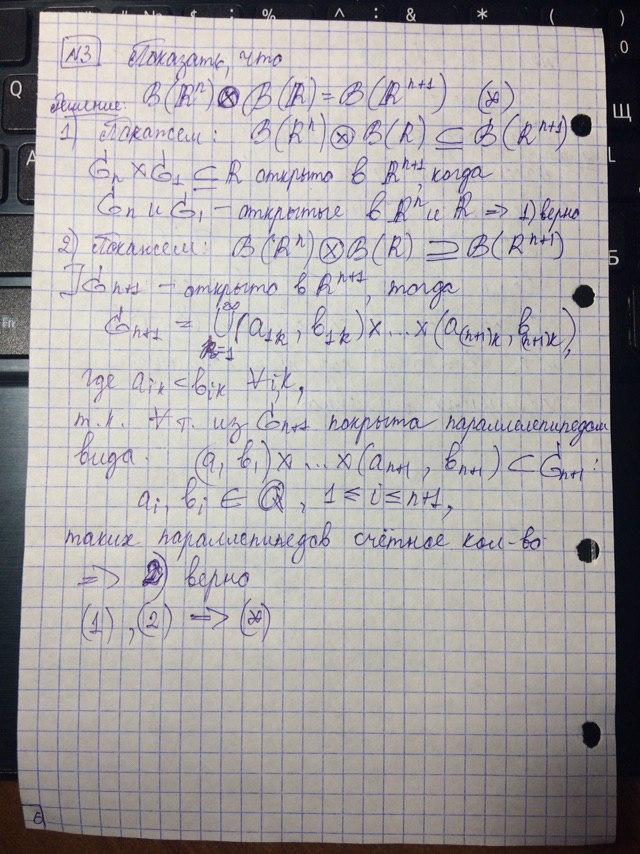 N3 Показать, что
Решение: B(ℝⁿ) ⊗ B(ℝ) = B(ℝⁿ⁺¹) (*)
1) Покажем: B(ℝⁿ) ⊗ B(ℝ) ⊆ B(ℝⁿ⁺¹)
Gₙ × G₁ ⊆ R открыто в ℝⁿ⁺¹, когда
Gₙ и G₁ – открытые в ℝⁿ и ℝ => 1) верно
2) Покажем: B(ℝⁿ) ⊗ B(ℝ) ⊇ B(ℝⁿ⁺¹)
] Gₙ₊₁ – открыто в ℝⁿ⁺¹, тогда
Gₙ₊₁ = ∞⋃k=1 (a₁ₖ, b₁ₖ) × ... × (a₍ₙ₊₁₎ₖ, b₍ₙ₊₁₎ₖ),
где aᵢₖ < bᵢₖ ∀i,k,
т.к. ∀ т. из Gₙ₊₁ покрыта параллелепипедом
вида (a₁, b₁) × ... × (aₙ₊₁, bₙ₊₁) ⊂ Gₙ₊₁:
aᵢ, bᵢ ∈ ℚ, 1 ≤ i ≤ n+1,
таких параллепипедов счётное кол-во
=> 2) верно
(1), (2) => (*)
Q
A
Fn
%
&
*
(
)
:
;
0
Щ
L
Б